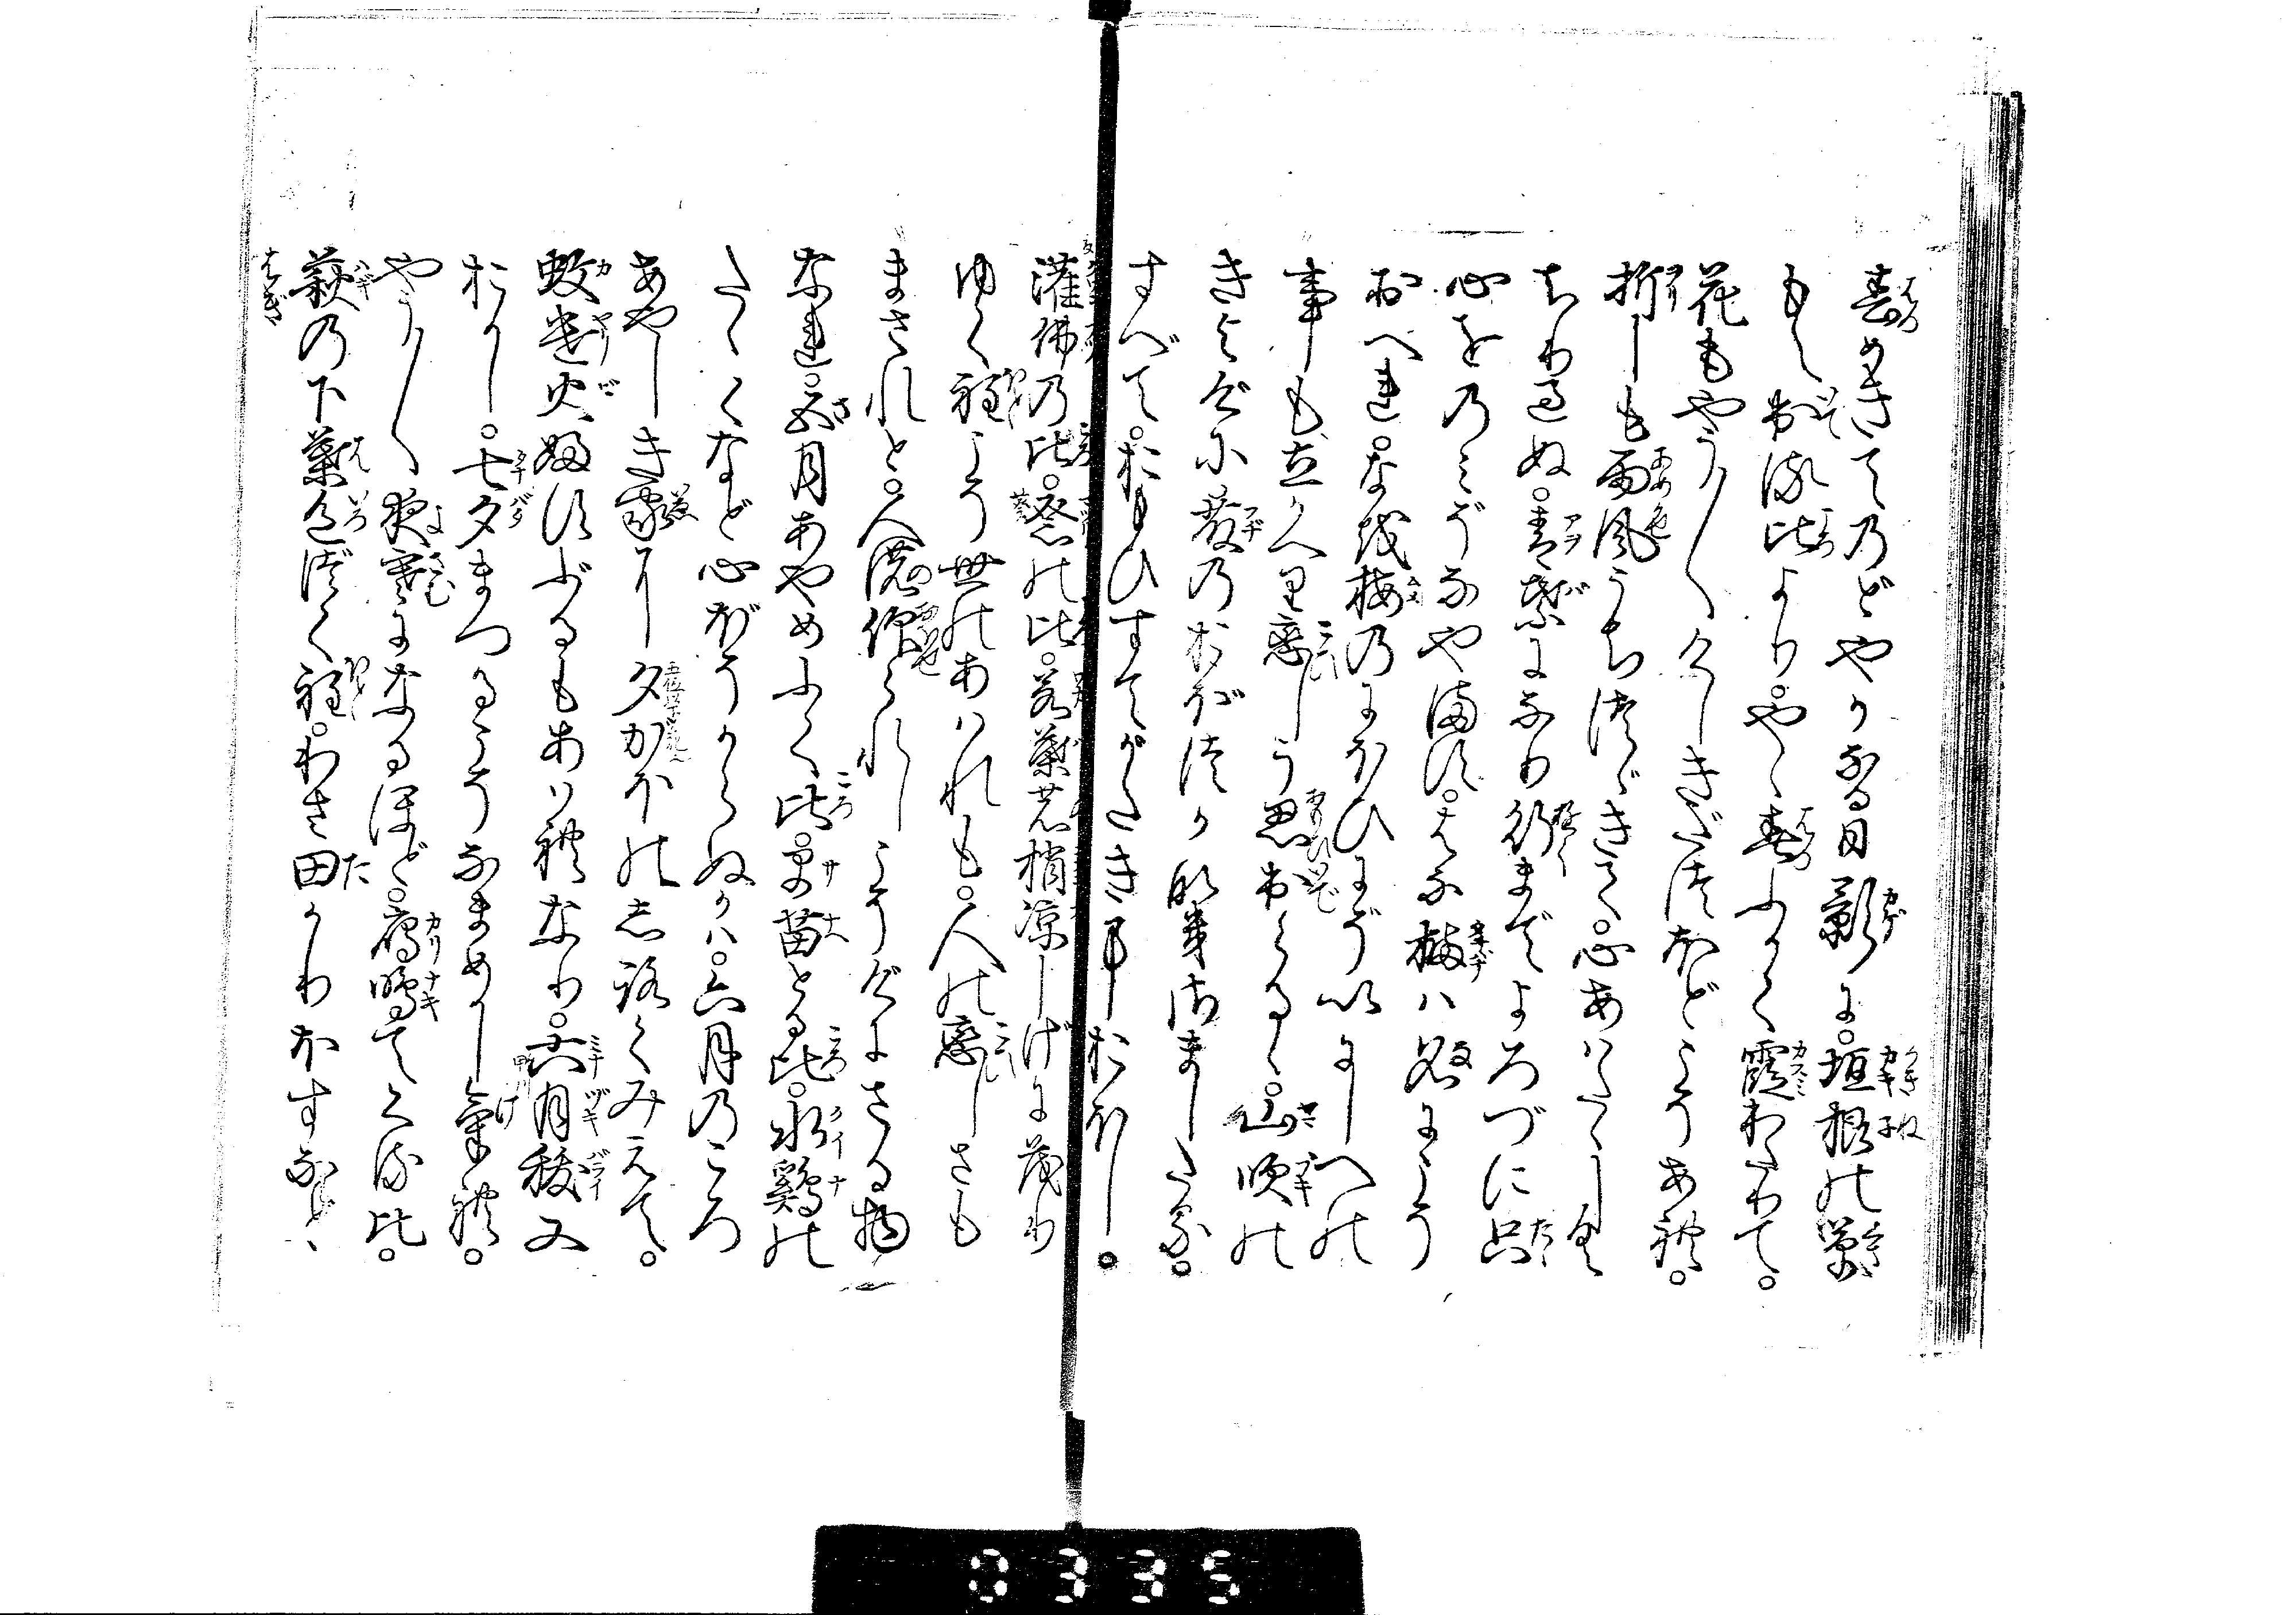 春めきてのどやかなる日影に。垣根の草
もえ出る比より。やゝ春ふかく霞わたりて。
花もやう〳〵けしきだつほどこそあれ。
折しも雨風うちつゞきて。心あはたゝしく
ちり過ぬ。青葉になり行までよろづに只
心をのみぞなやます。はな橘は名にこそ
おへれ。なを梅のにほひにぞいにしへの
事も立かへり恋しう思出らるゝ。山吹の
きよげに藤のおぼつかなきさましたる。
すべて。おもひすてがたき事おほし。
灌佛の比。祭の比。若葉の梢涼しげに茂り
ゆく程こそ世のあはれも。人の恋しさも
まされと。人の仰られしこそげにさる物
なれ。五月あやめふく比。早苗とる比。水鶏の
たゝくなど心ぼそからぬかは。六月のころ
あやしき家に夕がほのしろくみえて。
蚊遣火ふすぶるもあはれなり。六月祓又
おかし。七夕まつるこそなまめかしけれ。
やう〳〵夜寒になるほど。鴈鳴てくる比。
萩の下葉色づく程。わさ田かりほすなど、